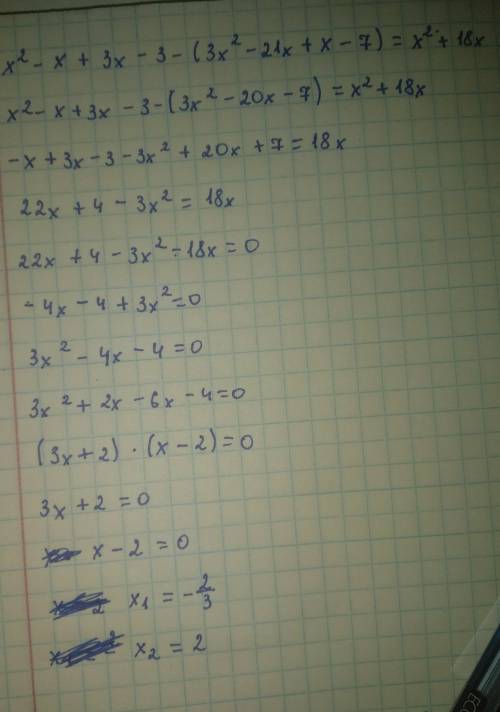 x² - x + 3x - 3 - (3x² - 21x + x - 7) = x² + 18x
x² - x + 3x - 3 - (3x² - 20x - 7) = x² + 18x
-x + 3x - 3 - 3x² + 20x + 7 = 18x
22x + 4 - 3x² = 18x
22x + 4 - 3x² - 18x = 0
- 4x - 4 + 3x² = 0
3x² - 4x - 4 = 0
3x² + 2x - 6x - 4 = 0
(3x + 2) · (x - 2) = 0
3x + 2 = 0
x - 2 = 0
x₁ = -2/3
x₂ = 2